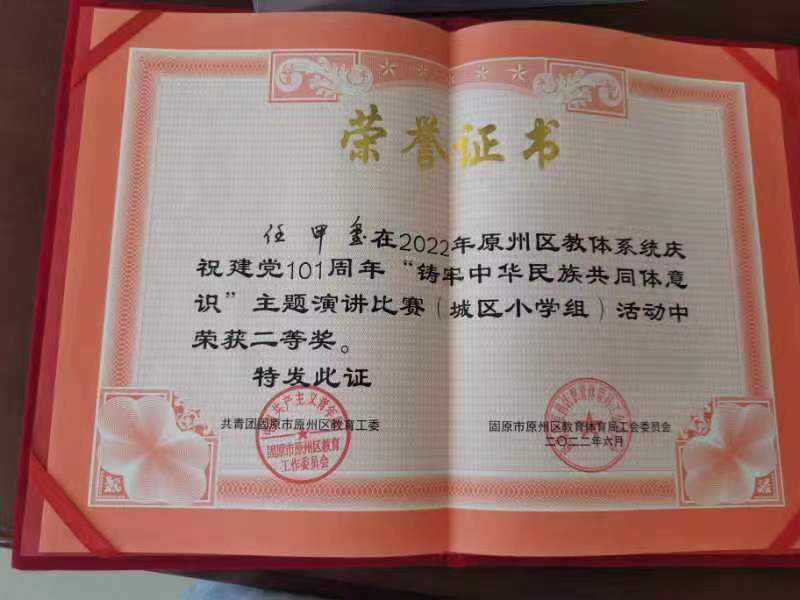 荣誉证书
任甲玺在2022年原州区教体系统庆
祝建党101周年“铸牢中华民族共同体意
识”主题演讲比赛（城区小学组）活动中
荣获二等奖。
特发此证
共青团固原市原州区教育工委
固原市原州区教育体育局工会委员会
二〇二二年六月
共产主义青年
固原市原州区教育
工作委员会